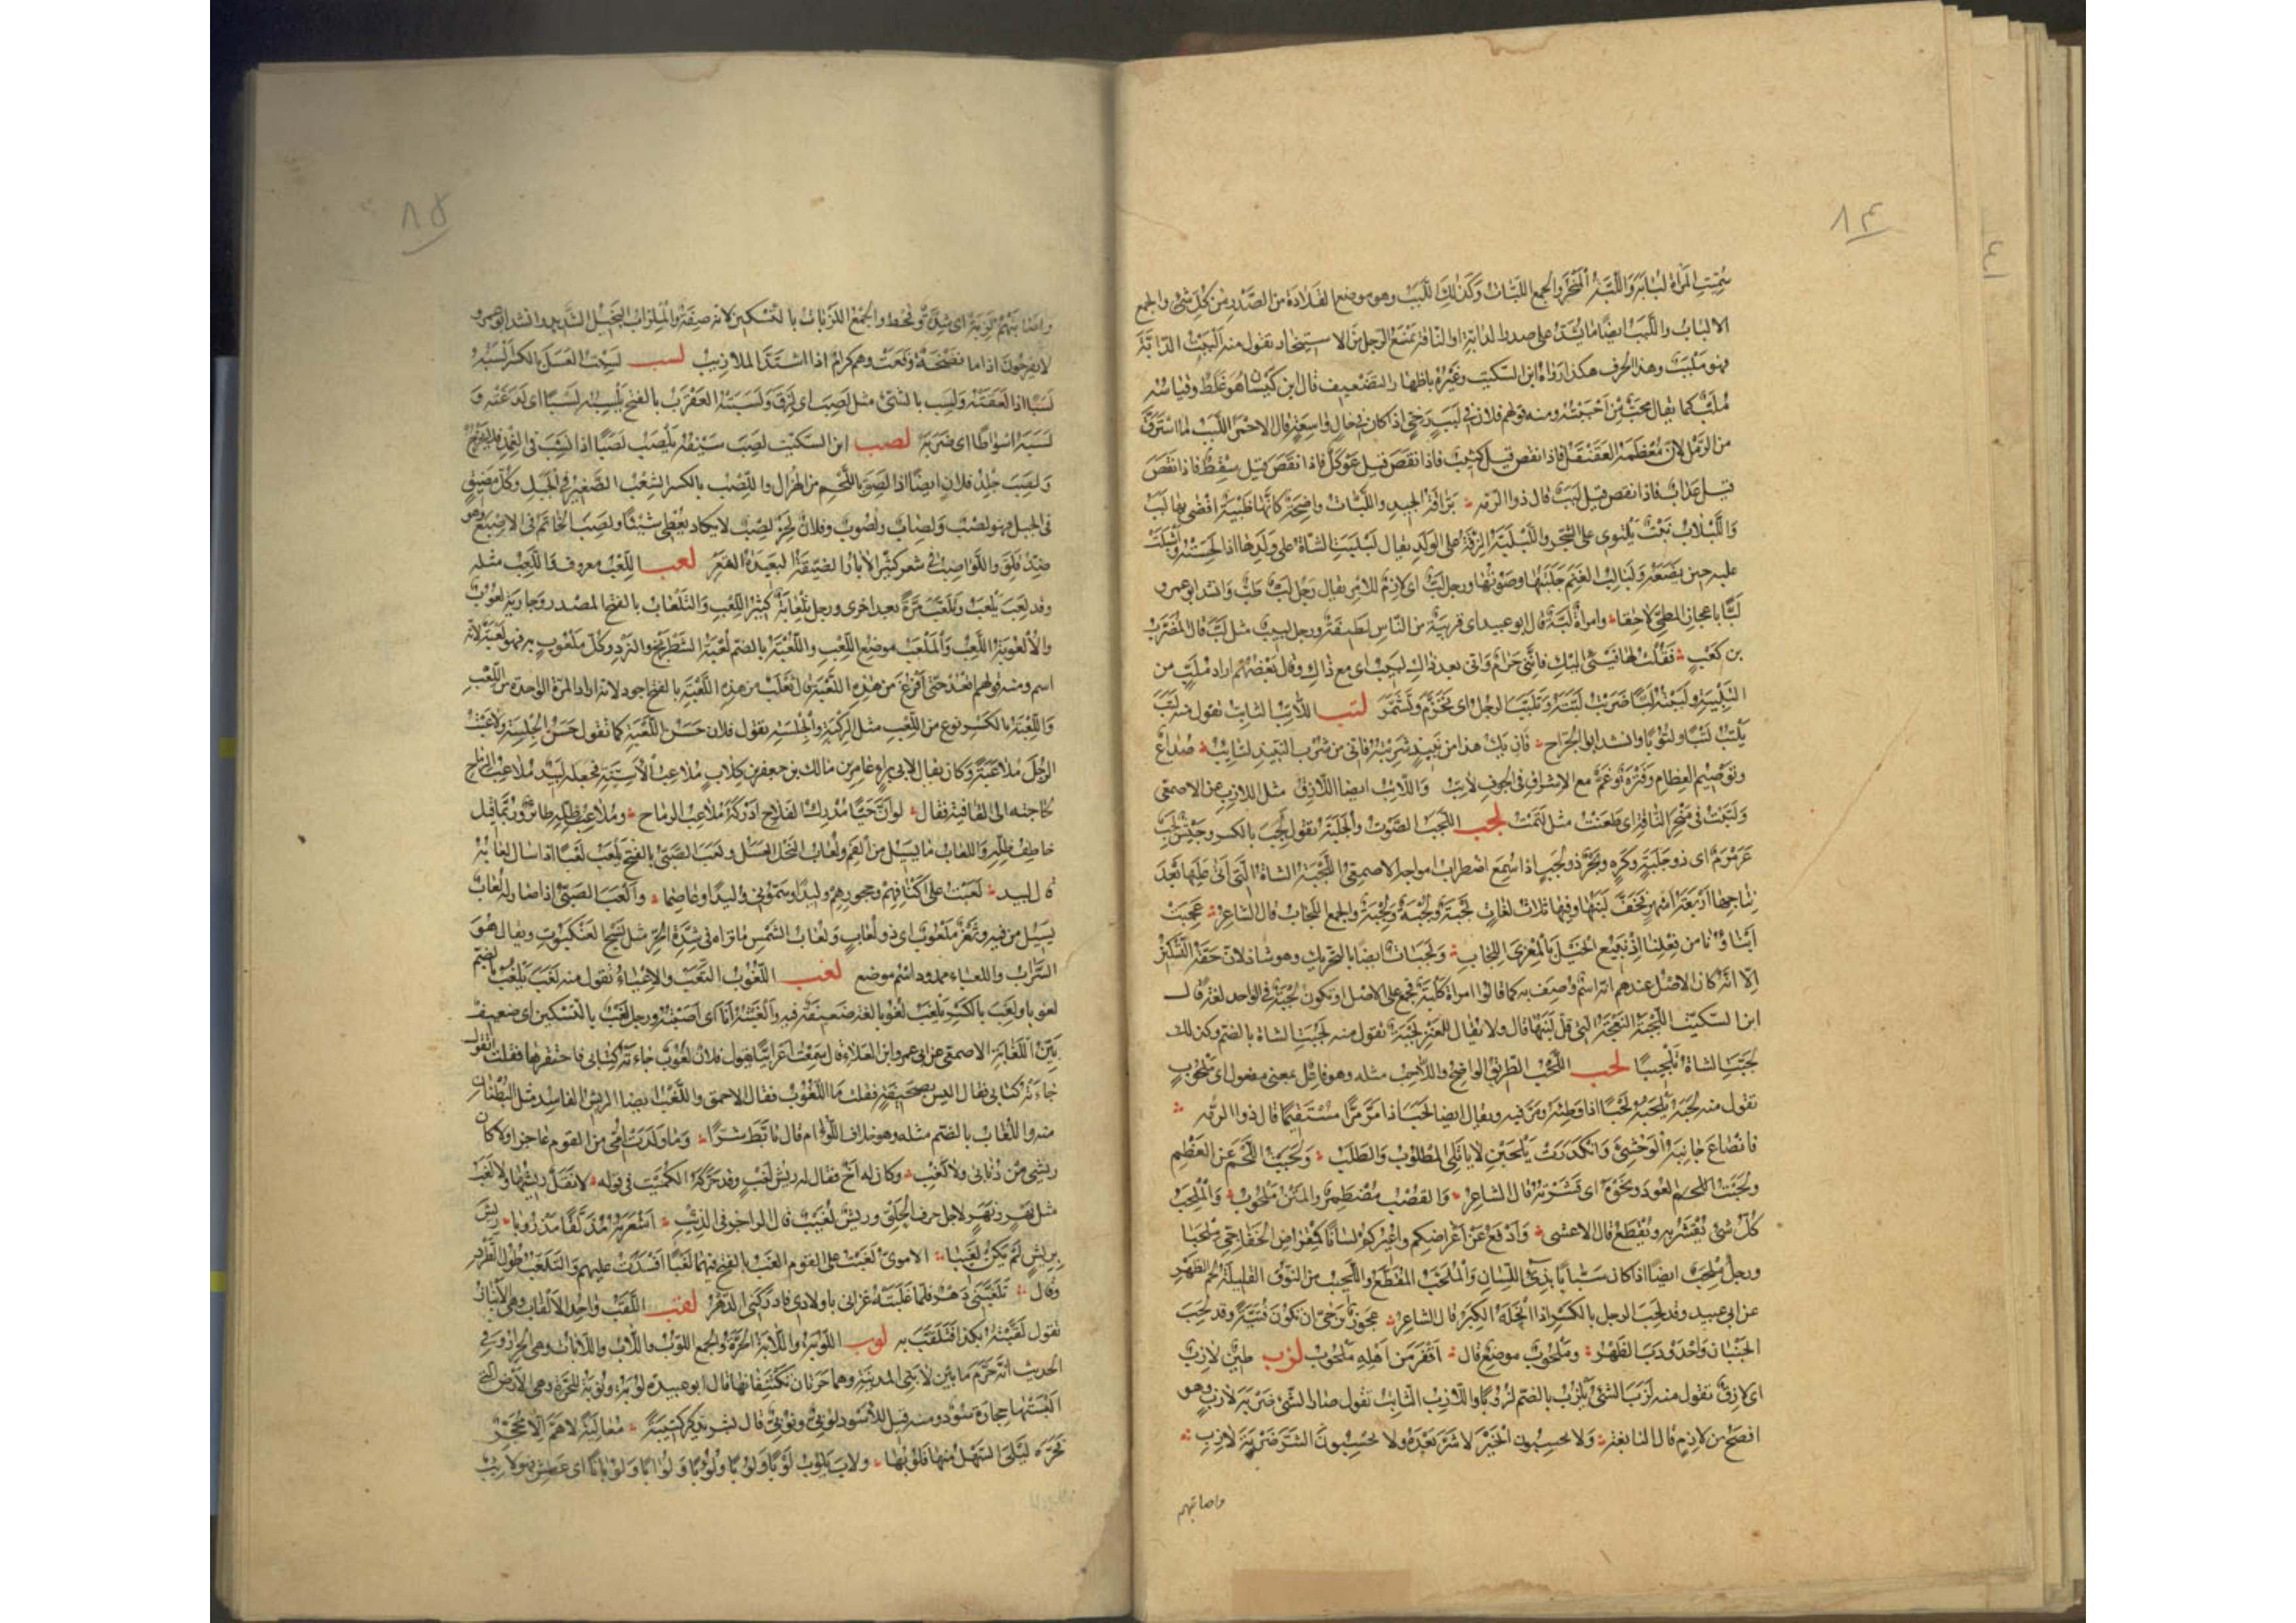 ٨٤
سُمِّيت المرأة لبابة واللَّبَّة المنحر والجمع اللبات وكذلك اللبب وهو موضع القلادة من الصدر من كل شئ والجمع
الالباب واللبب ايضا ما يشد على صدر الدابة او الناقة يمنع الرحل من الاستيخار تقول منه البَبْت الدابة
فهو ملبب وهذا الحرف هكذا رواه ابن السكيت وغيره باظهار التضعيف قال ابن كيسان هو غلط وقياسه
مُلَبّ كما يقال محبّ من احببته ومنه قولهم فلان فى لبب رخى اذا كان فى حال واسعة قال الاحمر اللبب ما استرق
من الرمل لان معظمه العقنقل فاذا نقص قيل كثيب فاذا نقص قيل عوكل فاذا نقص قيل سقط فاذا نقص
قيل عداب فاذا نقص قيل لبب قال ذو الرمة برّاقة الجيد واللبات واضحة كانها ظبية افضى بها لبب
واللبلاب نبت يلتوى على الشجر واللبلبة الرقة على الولد يقال لبلبت الشاة على ولدها اذا لحسته واشبلت
عليه حين تضعه ولبالب الغنم جلبتها وصوتها ورجل لبّ اى لازم للامر يقال رجل لبّ طبّ وانشد ابو عمرو
لبّا باعجاز المطى لاحقا وامراة لبّة قال ابو عبيد اى قريبة من الناس لطيفة ورجل لبيب مثل لبّ قال المضرب
بن كعب فقلت لها فيئى اليك فاننى حرام وانى بعد ذاك لبيب اى مع ذاك وقال بعضهم اراد ملبّ من
التلبية ولببته لبّا ضربت لبّته وتلبب الرجل اى تحزم وتشمر لتب اللاتب الثابت تقول منه لتب
يلتب لتبا ولتوبا وانشد ابو الجراح فان يك هذا من نبيذ شربته فانى من شرب النبيذ لتائب صداع
وتوصيم العظام وفترة وغم مع الاشراق فى الجوف لاتب واللاتب ايضا اللازق مثل اللازب عن الاصمعى
ولتبت فى منحر الناقة اى طعنت مثل لتمت لجب اللجب الصوت والجلبة تقول لجب بالكسر وجيش لجب
عرمرم اى ذو جلبة وكثرة وبحر ذو لجب اذا سمع اضطراب امواجه الاصمعى اللجبة الشاة التى اتى عليها بعد
نتاجها اربعة اشهر فخف لبنها وفيها ثلاث لغات لجبة ولجبة ولجبة والجمع اللجاب قال الشاعر عجبت
ابناؤنا من فعلنا اذ نبيع الخيل بالمعزى اللجاب ولجبات ايضا بالتحريك وهو شاذ لان حقه التسكين
الا انه كان الاصل عندهم انه اسم وصف به كما قالوا امراة كلبة فجمع على الاصل او تكون لجبة فى الواحد لغة قال
ابن السكيت اللجبة النعجة التى قل لبنها قال ولا يقال للعنز لجبة تقول منه لجبت الشاة بالضم وكذلك
لجبت الشاة تلجيبا لحب اللحب الطريق الواضح واللاحب مثله وهو فاعل بمعنى مفعول اى ملحوب
تقول منه لحبه يلحبه لحبا اذا وطئه ومر فيه ويقال ايضا لحب اذا مر مرا مستقيما قال ذو الرمة
فانصاع جانبه الوحشى وانكدرت يلحبن لا ياتلى المطلوب والطلب ولحبت اللحم عن العظم
ولحبت اللحم العود ونحوه اى قشرته قال الشاعر والقصب مضطمر والمتن ملحوب والملحب
كل شئ يقشر به ويقطع قال الاعشى وادفع عن اعراضكم واعيركم لسانا كمقراض الخفاجى ملحبا
ورجل ملحب ايضا اذا كان سبابا بذى اللسان والملحب المقطع واللحيب من النوق القليلة لحم الظهر
عن ابى عبيد وقد لحب الرجل بالكسر اذا انحله الكبر قال الشاعر عجوز ترجى ان تكون فتية وقد لحب
الجنبان واحدودب الظهر وملحوب موضع قال اقفر من اهله ملحوب لزب طين لازب
اى لازق تقول منه لزب الشئ يلزب بالضم لزوبا واللازب الثابت تقول صار الشئ ضربة لازب وهو
افصح من لازم قال النابغة ولا يحسبون الخير لا شر بعده ولا يحسبون الشر ضربة لازب
واصابتهم
٨٥
واصابتهم لزبة اى شدة وقحط والجمع اللزبات بالتسكين لانه صفة والملزاب البخيل الشديد وانشد ابو عمرو
لا يفرحون اذا ما نضخة وقعت وهم كرام اذا اشتد الملازيب لسب لسبت العسل بالكسر السبه
لسبا اذا لعقته ولسب بالشئ مثل لصب اى لزق ولسبته العقرب بالفتح تلسبه لسبا اى لدغته و
لسبه اسواطا اى ضربه لصب ابن السكيت لصب سيفه يلصب لصبا اذا نشب فى الغمد فلا يخرج
ولصب جلد فلان ايضا اذا لصق باللحم من الهزال واللصب بالكسر الشعب الصغير فى الجبل وكل مضيق
فى الجبل فهو لصب ولصاب ولصوب وفلان لحز لصب لا يكاد يعطى شيئا ولصب الخاتم فى الاصبع وهو
ضد قلق واللواصب فى شعر كثير الآبار الضيقة البعيدة القعر لعب اللعب معروف واللعب مثله
وقد لعب يلعب وتلعب مرة بعد اخرى ورجل تلعابة كثير اللعب والتلعاب بالفتح المصدر وجارية لعوب
والالعوبة اللعب والملعب موضع اللعب واللعبة بالضم لعبة الشطرنج والنرد وكل ملعوب به فهو لعبة لانه
اسم ومنه قولهم اقعد حتى افرغ من هذه اللعبة قال ثعلب من هذه اللعبة بالفتح اجود لانه اراد المرة الواحدة من اللعب
واللعبة بالكسر نوع من اللعب مثل الركبة والجلسة تقول فلان حسن اللعبة كما تقول حسن الجلسة ولاعبت
الرجل ملاعبة وكان يقال لابى براء عامر بن مالك بن جعفر بن كلاب ملاعب الاسنة فجعله لبيد ملاعب الرماح
لحاجته الى القافية فقال لو ان حيا مدرك الفلاح ادركه ملاعب الرماح وملاعب ظله طائر وربما قيل
خاطف ظله واللعاب ما يسيل من الفم ولعاب النحل العسل ولعب الصبى بالفتح يلعب لعبا اذا سال لعابه
قال لبيد لعبت على اكتافهم وحجورهم وليدا وسمونى وليدا وعاصما والعب الصبى اذا صار له لعاب
يسيل من فيه وثغر ملعوب اى ذو لعاب ولعاب الشمس ما تراه فى شدة الحر مثل نسج العنكبوت ويقال هو
السراب واللعباء ممدود اسم موضع لغب اللغوب التعب والاعياء تقول منه لغب يلغب بالضم
لغوبا ولغب بالكسر يلغب لغوبا لغة ضعيفة فيه والغبته انا اى انصبته ورجل لغب بالتسكين اى ضعيف
بين اللغابة الاصمعى عن ابى عمرو ابن العلاء قال سمعت اعرابيا يقول فلان لغوب جاءته كتابى فاحتقرها فقلت اتقول
جاءته كتابى فقال اليس بصحيفة فقلت ما اللغوب فقال الاحمق واللغب ايضا الريش الفاسد مثل البطنان
منه واللغاب بالضم مثله وهو خلاف اللؤام قال تابط شرا وما ولدت امى من القوم عاجزا ولا كان
ريشى من ذنابى ولا لغب وكان له اخ فقال له ريش لغب وقد حركه الكميت فى قوله لا نقل ريشها ولا لغب
مثل نهر ونهر لاجل حرف الحلق وريش لغيب قال الراجز فى الذئب اشعرته مذلقا مذروبا ريش
بريش لم يكن لغيبا الاموى لغبت على القوم الغب بالفتح فيهما لغبا افسدت عليهم والتلغب طول الطرد
وقال تلغبنى دهر فلما غلبته غزانى باولادى فادركنى الدهر لقب اللقب واحد الالقاب وهى الانباز
تقول لقبته بكذا فتلقب به لوب اللوبة واللابة الحرة والجمع اللوب واللاب واللابات وهى الحرار وفى
الحديث انه حرم ما بين لابتى المدينة وهما حرتان تكتنفانها قال ابو عبيدة لوبة ونوبة للحرة وهى الارض التى
البستها حجارة سود ومنه قيل للاسود لوبى ونوبى قال بشر يذكر كتيبة معالية لا هم الا محجر
فحرة ليلى السهل منها فلوبها ولاب يلوب لوبا ولوبا ولوبا ولوابا ولوبانا اى عطش فهو لائب